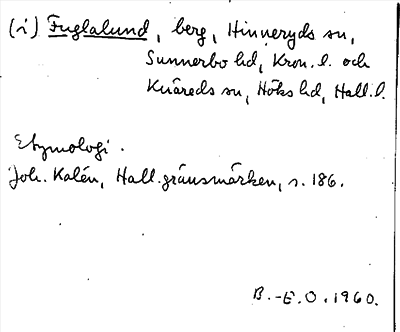 (i) Fuglalund, berg, Hinneryds sn,
Sunnerbo hd, Kron. l. och
Knäreds sn, Höks hd, Hall. l.
Etymologi.
Joh. Kalén, Hall. gränsmärken, s. 186.
B.-E.O. 1960.